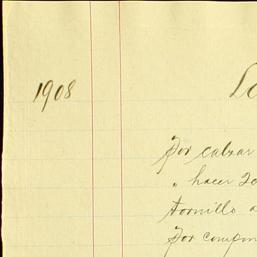 1908
Lo
Por calzar
" hacer 20
tornillo a
Por compon